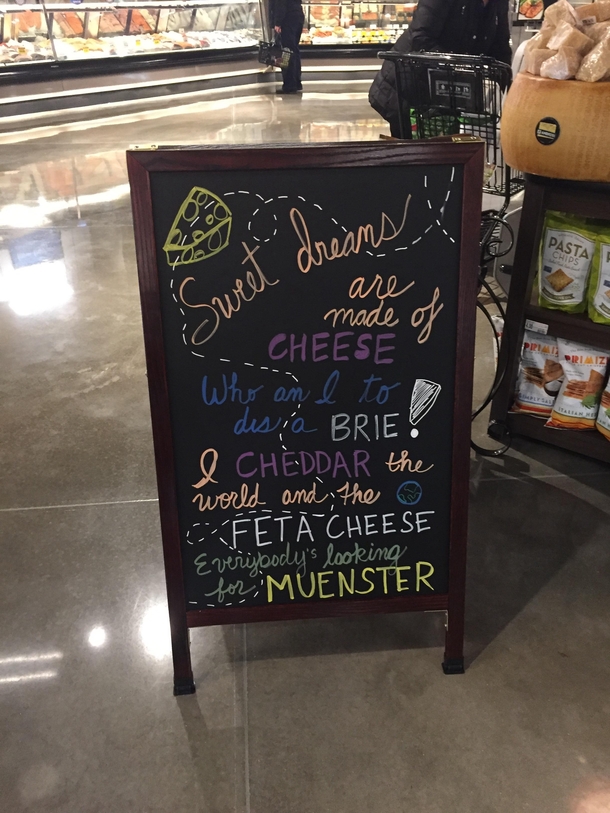 Sweet dreams
are
made of
CHEESE
Who an I to
dis a BRIE!
I CHEDDAR the
world and the
FETA CHEESE
Everybody's looking
for MUENSTER
PASTA
CHIPS
PRIMIZ
PRIMIZ